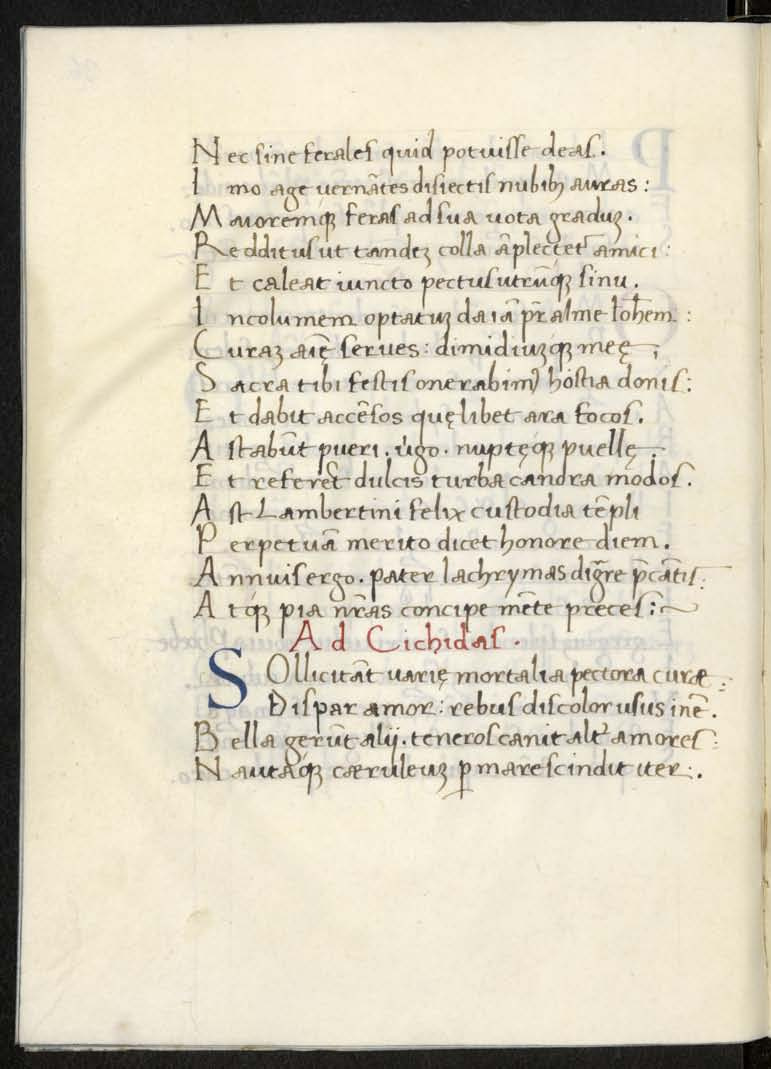 Nec sine ferales quid potuisse deas.
Imo age uernãtes disiectis nubibꝰ auras:
Maioremqꝫ feras ad sua uota graduꝫ.
Redditus ut tandeꝫ colla ãplectet᷑ amici:
Et caleat iuncto pectus utrũqꝫ sinu.
Incolumem optatuꝫ da iã pr̃ alme Ioh̃em:
Curaꝫ aĩę serues: dimidiuꝫqꝫ meę;
Sacra tibi festis onerabimꝰ hostia donis:
Et dabit accẽsos quęlibet ara focos.
Astabũt pueri. ũgo. nuptęqꝫ puellę.
Et referet dulcis turba canora modos.
Ast Lambertini felix custodia tẽpli
Perpetuã merito dicet honore diem.
Annuis ergo. pater lachrymas dig̃re p̃cãtis:
Atqꝫ pia nr̃as concipe mẽte preces:~
Ad Cichidas.
SOllicitãt uarię mortalia pectora curæ:
Dispar amor: rebus discolor usus inẽ.
Bella gerũt alij. teneros canit alt᷑ amores:
Nautaqꝫ cæruleuꝫ ꝑ mare scindit iter:.